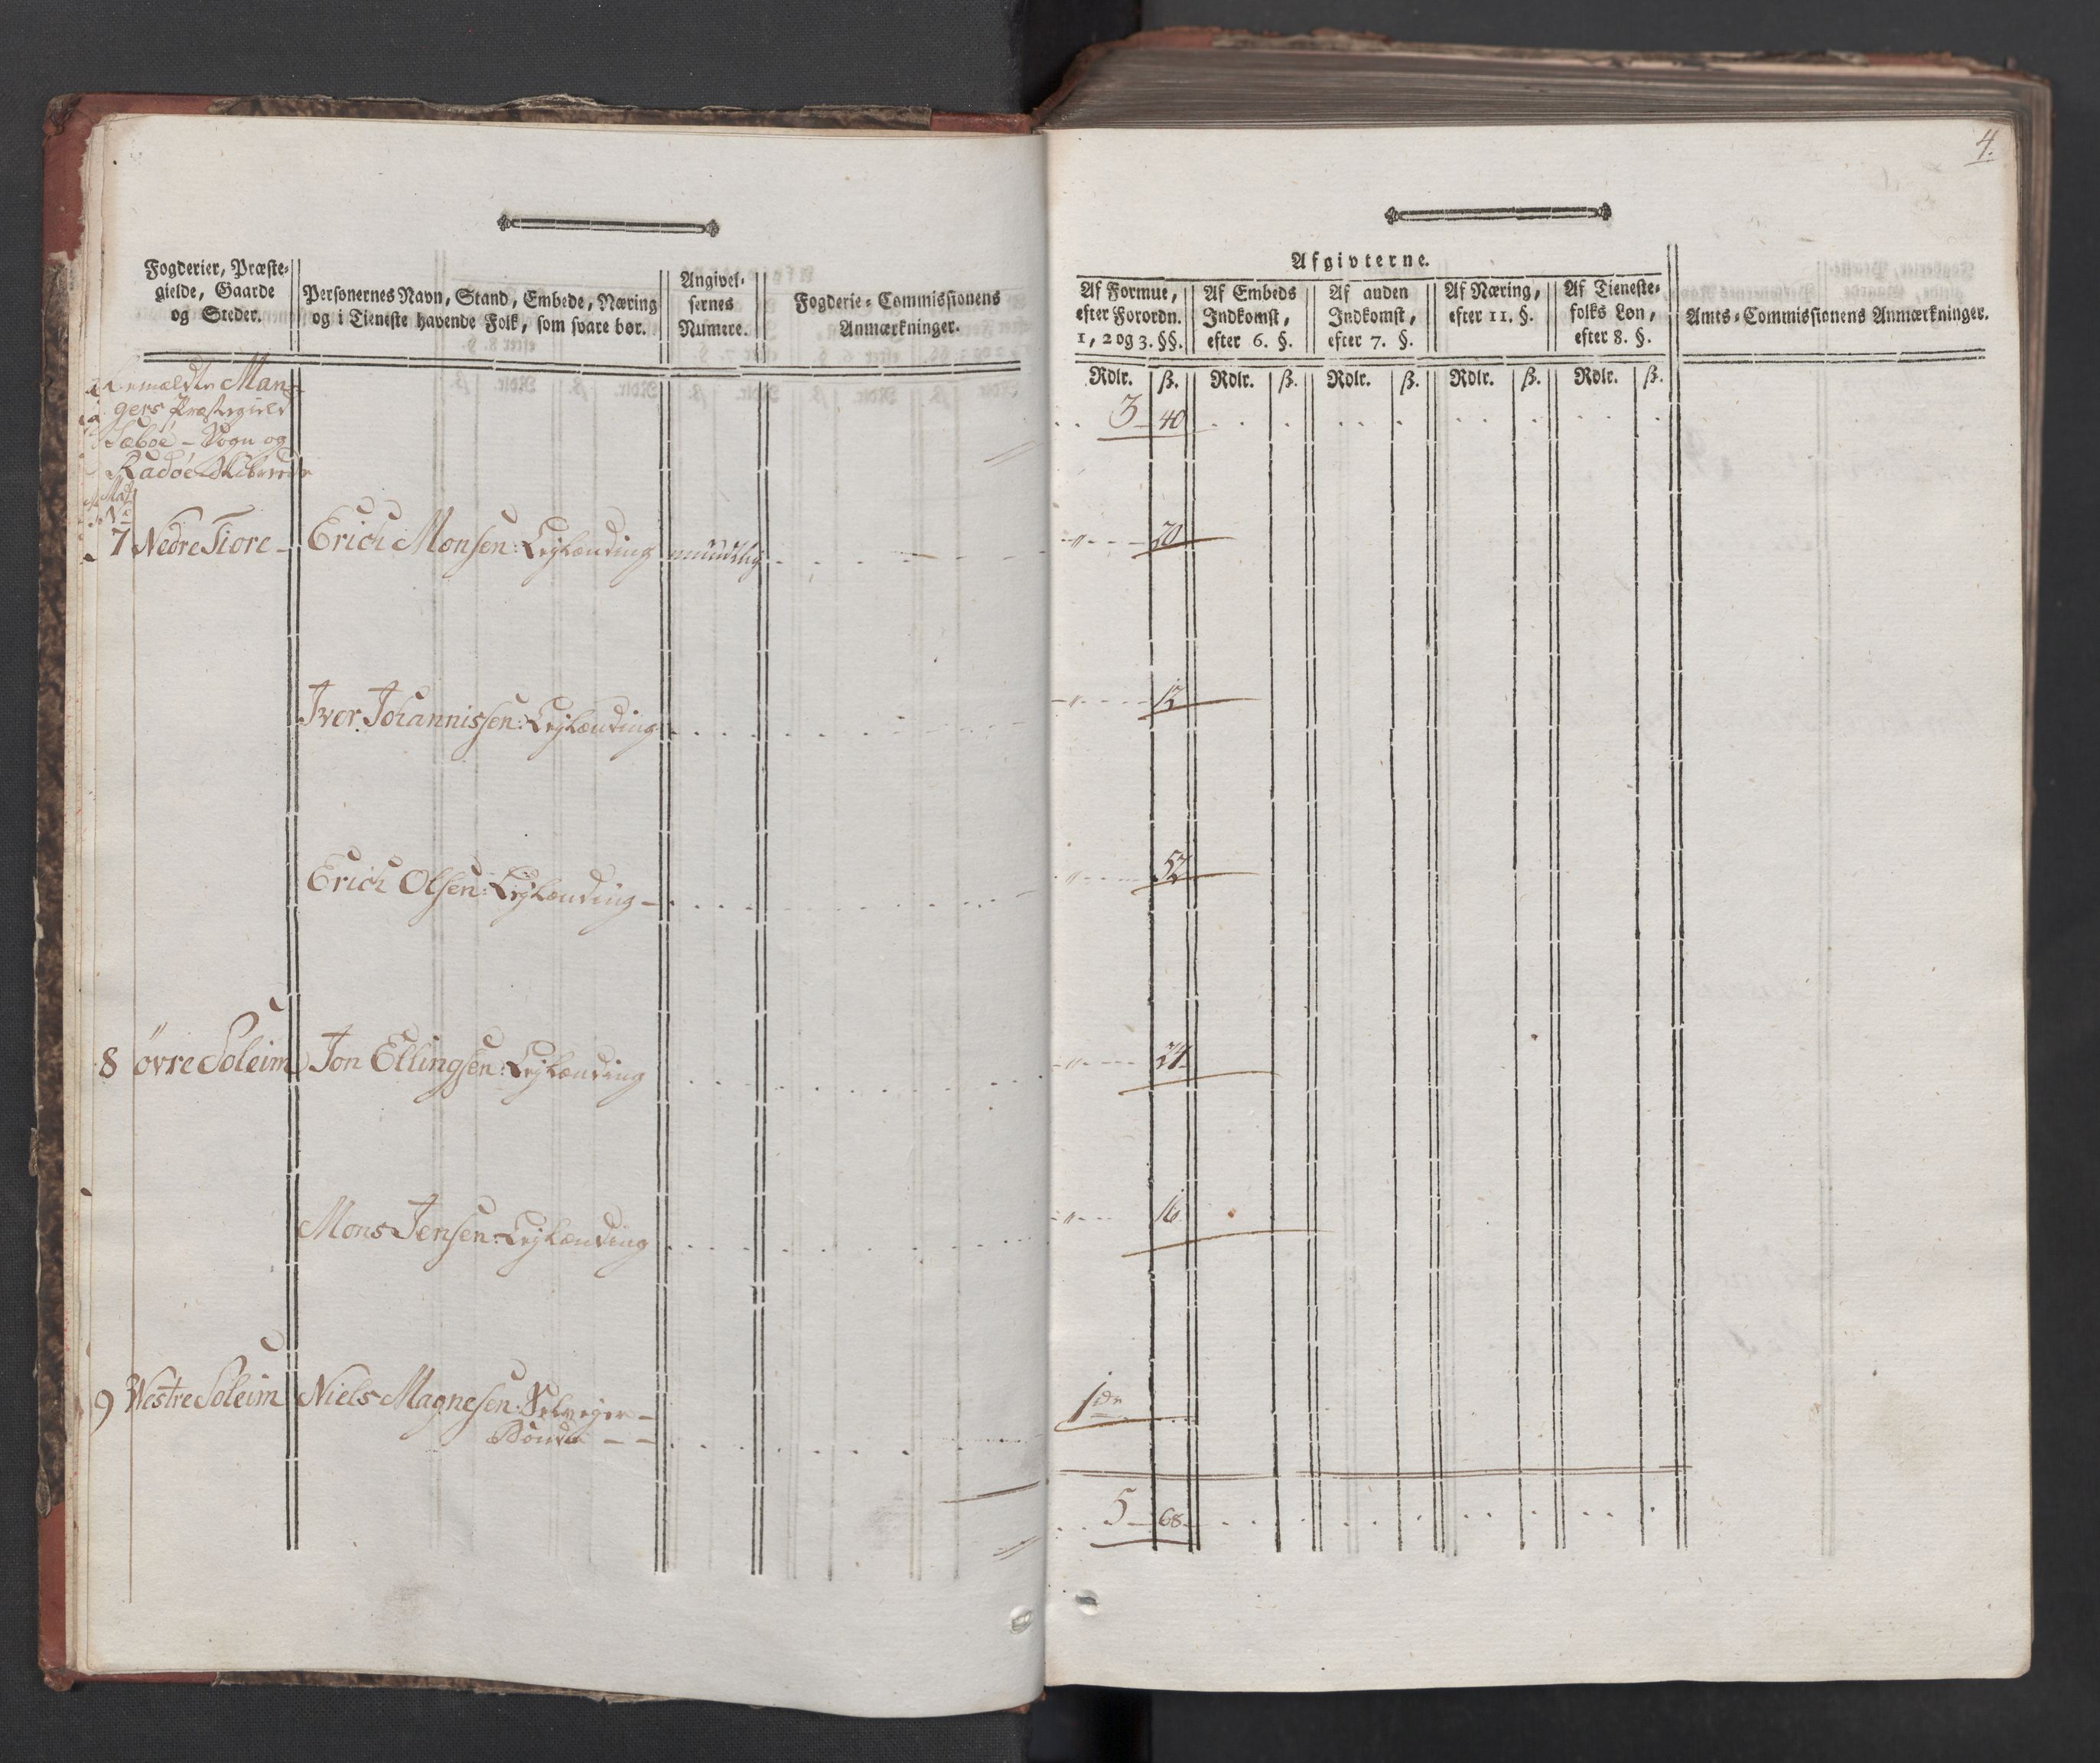 4.
Fogderier, Præste-
gielde, Gaarde
og Steder.
Personernes Navn, Stand, Embede, Næring
og i Tieneste havende Folk, som svare bør.
Angivel-
sernes
Numere.
Fogderie-Commissionens
Anmærkninger.
Afgivterne.
Af Formue,
efter Forordn.
1, 2 og 3. §§.
Af Embeds
Indkomst,
efter 6. §.
Af anden
Indkomst,
efter 7. §.
Af Næring,
efter 11. §.
Af Tieneste-
folks Løn,
efter 8. §.
Amts-Commissionens Anmærkninger.
Rdlr. ß. Rdlr. ß. Rdlr. ß. Rdlr. ß. Rdlr. ß.
Man-
gers Præstegield
Sæbøe - Sogn og
Radøe Skibrede
3 40
7 Nedre Tiore - Erich Monsen: Lejlænding mundtlig - 20
Iver Johannissen: Lejlænding - 12
Erich Olsen: Lejlænding - 52
8 øvre Soleim Jon Ellingsen: Lejlænding 24
Mons Jensen: Lejlænding 16
9 Westre Soleim Niels Magnesen: Selveyer - 1
Bonde - -
5 - 68